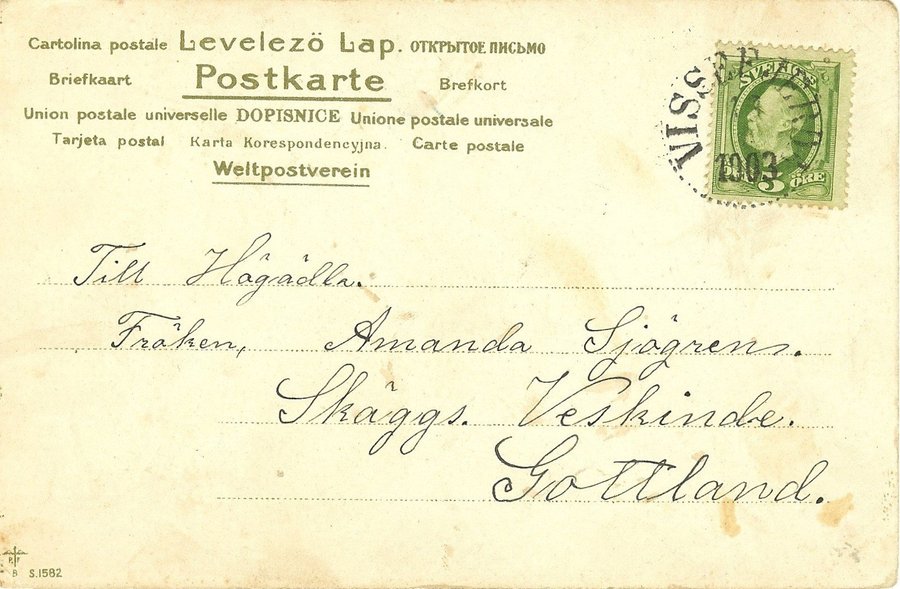 Cartolina postale Levelező Lap. ОТКРЫТОЕ ПИСЬМО
Briefkaart Postkarte Brefkort
Union postale universelle DOPISNICE Unione postale universale
Tarjeta postal Karta Korespondencyjna. Carte postale
Weltpostverein
SVERIGE
1903
5 ÖRE
Till Högädla.
Fröken, Amanda Sjögren.
Skäggs. Veskinde.
Gottland.
P.F.
B S.1582